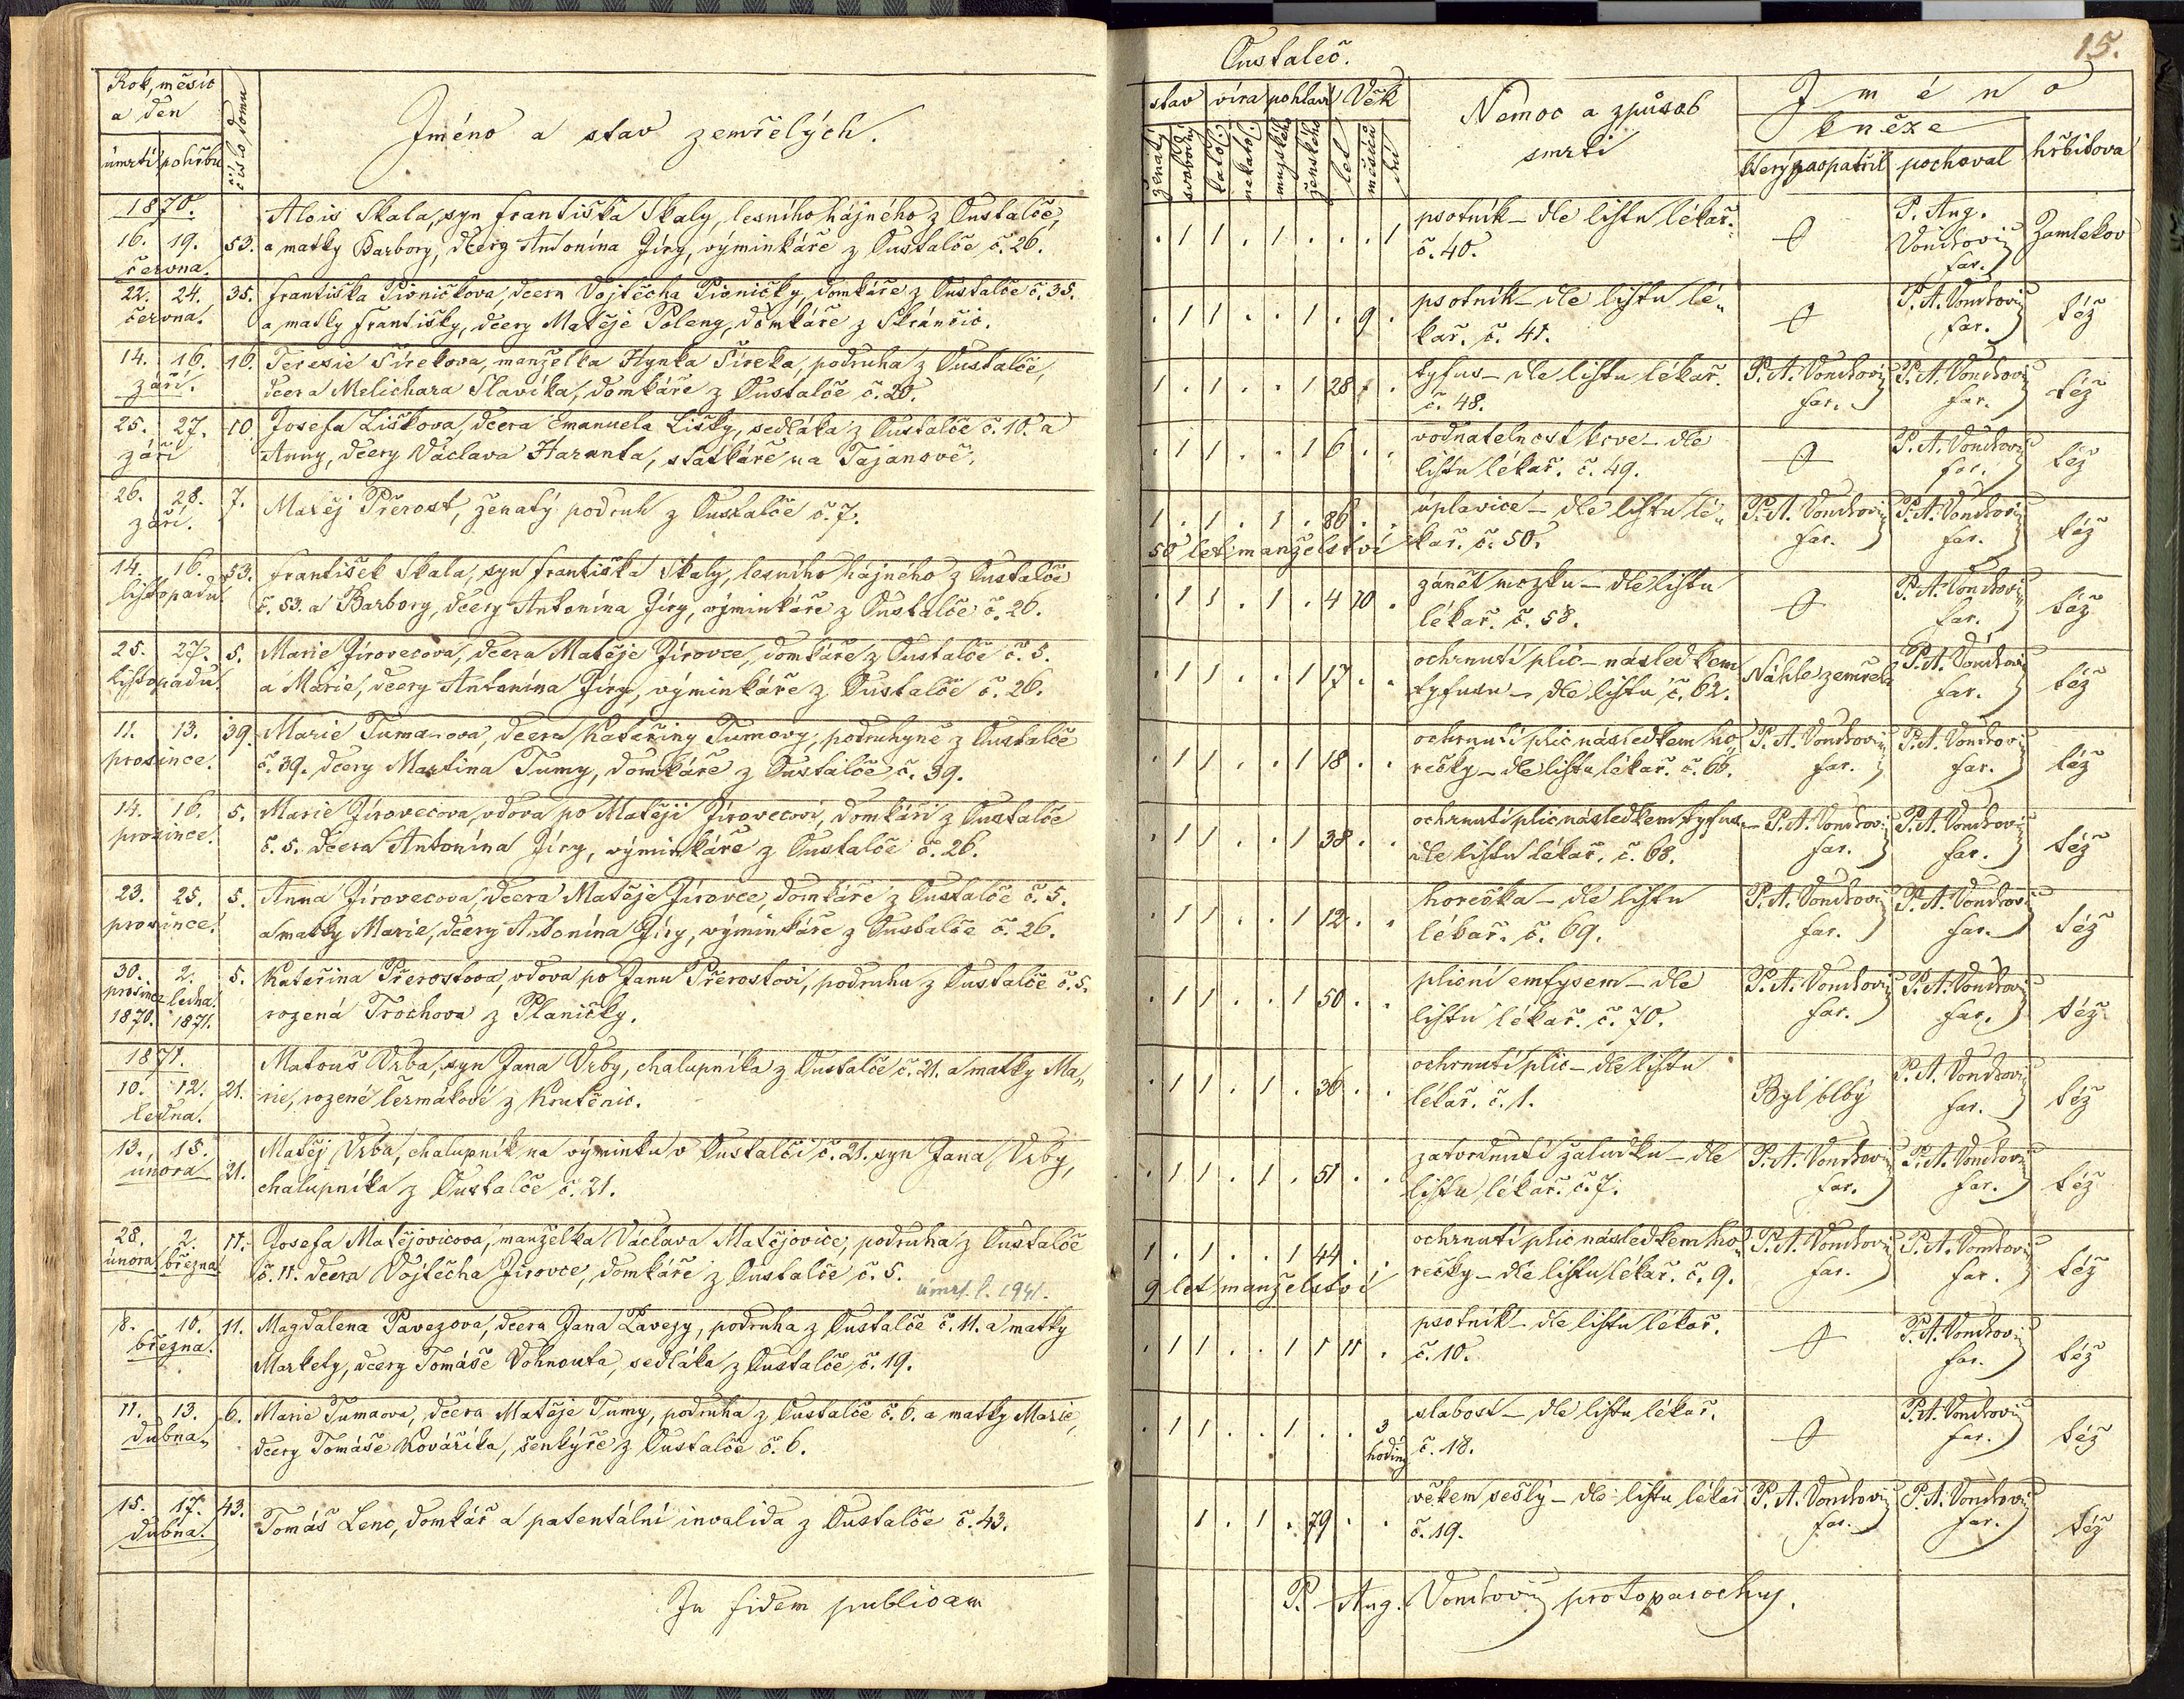 Rok, měsíc
a den
úmrtí pohřbu
číslo domu
Jméno a stav zemřelých.
1870.
16. 19. 53. Alois Skala, syn Františka Skaly, lesního hajného z Oustalče,
června. a matky Barbory, dcery Antonína Jíry, výminkáře z Oustalče č. 26.
22. 24. 35. Františka Pivničkova, dcera Vojtěcha Pivničky, domkáře z Oustalče č. 35.
června. a matky Františky, dcery Matěje Poleny, domkáře z Skránčic.
14. 16. 16. Teresie Sírekova, manželka Hynka Síreka, podruha z Oustalče,
září. dcera Melichara Slavíka, domkáře z Oustalče č. 20.
25. 27. 10 Josefa Liškova, dcera Emanuela Lišky, sedláka z Oustalče č. 10. a
září Anny, dcery Václava Haranta, statkáře na Tajanově.
26. 28. 7. Matěj Přerost, ženatý podruh z Oustalče č. 7.
září.
14. 16. 53. František Skala, syn Františka Skaly, lesního hájného z Oustalče
listopadu. č. 53. a Barbory, dcery Antonína Jíry, výminkáře z Oustalče č. 26.
25. 27. 5. Marie Jírovecova, dcera Matěje Jírovce, domkáře z Oustalče č. 5.
listopadu. a Marie, dcery Antonína Jíry, výminkáře z Oustalče č. 26.
11. 13. 39. Marie Tumaova, dcera Kateřiny Tumovy, podruhyně z Oustalče
prosince. č. 39. dcery Martina Tumy, domkáře z Oustalče č. 39.
14. 16. 5. Marie Jírovecova, vdova po Matěji Jírovecovi, domkáři z Oustalče
prosince. č. 5. dcera Antonína Jíry, výminkáře z Oustalče č. 26.
23. 25. 5. Anna Jírovecova, dcera Matěje Jírovce, domkáře z Oustalče č. 5.
prosince. a matky Marie, dcery Antonína Jíry, výminkáře z Oustalče č. 26.
30. 2. 5. Kateřina Přerostova, vdova po Janu Přerostovi, podruhu z Oustalče č. 5.
prosince ledna.
1870. 1871. rozená Trochova z Planičky.
1871.
Matouš Vrba, syn Jana Vrby, chalupníka z Oustalče č. 21. a matky Ma„
10. 12. 21. rie, rozené Čermákové z Kratěnic.
ledna.
13. 15. Matěj Vrba, chalupník na výminku v Oustalči č. 21. syn Jana Vrby,
února 21. chalupníka z Oustalče č. 21.
28. 2. 11. Josefa Matějovicova, manželka Václava Matějovice, podruha z Oustalče
února března č. 11. dcera Vojtěcha Jírovce, domkáře z Oustalče č. 5.
úmrt. l. 1941.
8. 10. 11. Magdalena Pavezova, dcera Jana Pavezy, podruha z Oustalče č. 11. a matky
března. Markety, dcery Tomáše Vohnouta, sedláka z Oustalče č. 19.
11. 13. 6. Marie Tumaova, dcera Matěje Tumy, podruha z Oustalče č. 6. a matky Marie,
dubna. dcery Tomáše Kováříka, šenkýře z Oustalče č. 6.
15. 17. 43. Tomáš Lenc, domkář a patentální invalida z Oustalče č. 43.
dubna.
In fidem publicam
Oustaleč. 15.
stav víra pohlaví Věk
Nemoc a způsob
smrti
Jméno
kněze
hřbitova
ženatý svobodný katol. nekatol. mužského ženského let měsíců dní
který zaopatřil pochoval
. 1 1 . 1 . . . 1 psotník – dle listu lékař.
č. 40.
P. Aug.
Vondrovic
far.
Zamlekov
. 1 1 . . 1 . 9 . psotník – dle listu lé„
kař. č. 41.
P. A. Vondrovic
far.
též
1 . 1 . . 1 28 . tyfus – dle listu lékař.
č. 48.
P. A. Vondrovic
far.
P. A. Vondrovic
far.
též
. 1 1 . . 1 6 . . vodnatelnost krve – dle
listu lékař. č. 49.
P. A. Vondrovic
far.
též
1 . 1 . 1 . 86 . . úplavice – dle listu lé„
50 let manželství kař. č. 50.
P. A. Vondrovic
far.
P. A. Vondrovic
far.
též
. 1 1 . 1 . 4 10 . zánět mozku – dle listu
lékař. č. 58.
P. A. Vondrovic
far.
též
. 1 1 . . 1 17 . . ochrnutí plic – následkem
tyfusu – dle listu č. 62.
Náhle zemřela
P. A. Vondrovic
far.
též
. 1 1 . . 1 18 . . ochrnutí plic následkem ho„
rečky – dle listu lékař. č. 66.
P. A. Vondrovic
far.
P. A. Vondrovic
far.
též
. 1 1 . . 1 38 . . ochrnutí plic následkem tyfusu –
dle listu lékař. č. 68.
P. A. Vondrovic
far.
P. A. Vondrovic
far.
též
. 1 1 . . 1 12 . . horečka – dle listu
lékař. č. 69.
P. A. Vondrovic
far.
P. A. Vondrovic
far.
též
. 1 1 . . 1 50 . . plicní emfysem – dle
listu lékař. č. 70.
P. A. Vondrovic
far.
P. A. Vondrovic
far.
též
. 1 1 . 1 . 36 . . ochrnutí plic – dle listu
lékař. č. 1.
Byl blbý
P. A. Vondrovic
far.
též
. 1 1 . 1 . 51 . . zatvrdnutí žaludku – dle
listu lékař. č. 7.
P. A. Vondrovic
far.
P. A. Vondrovic
far.
též
1 . 1 . . 1 44 . . ochrnutí plic následkem ho„
9 let manželství rečky – dle listu lékař. č. 9.
P. A. Vondrovic
far.
P. A. Vondrovic
far.
též
. 1 1 . . 1 1 11 . psotník – dle listu lékař.
č. 10.
P. A. Vondrovic
far.
též
. 1 1 . . 1 . . 3 slabost – dle listu lékař.
hodiny č. 18.
P. A. Vondrovic
far.
též
1 . 1 . 79 . . věkem sešlý – dle listu lékař
č. 19.
P. A. Vondrovic
far.
P. A. Vondrovic
far.
též
P. Aug. Vondrovic protoparochus.